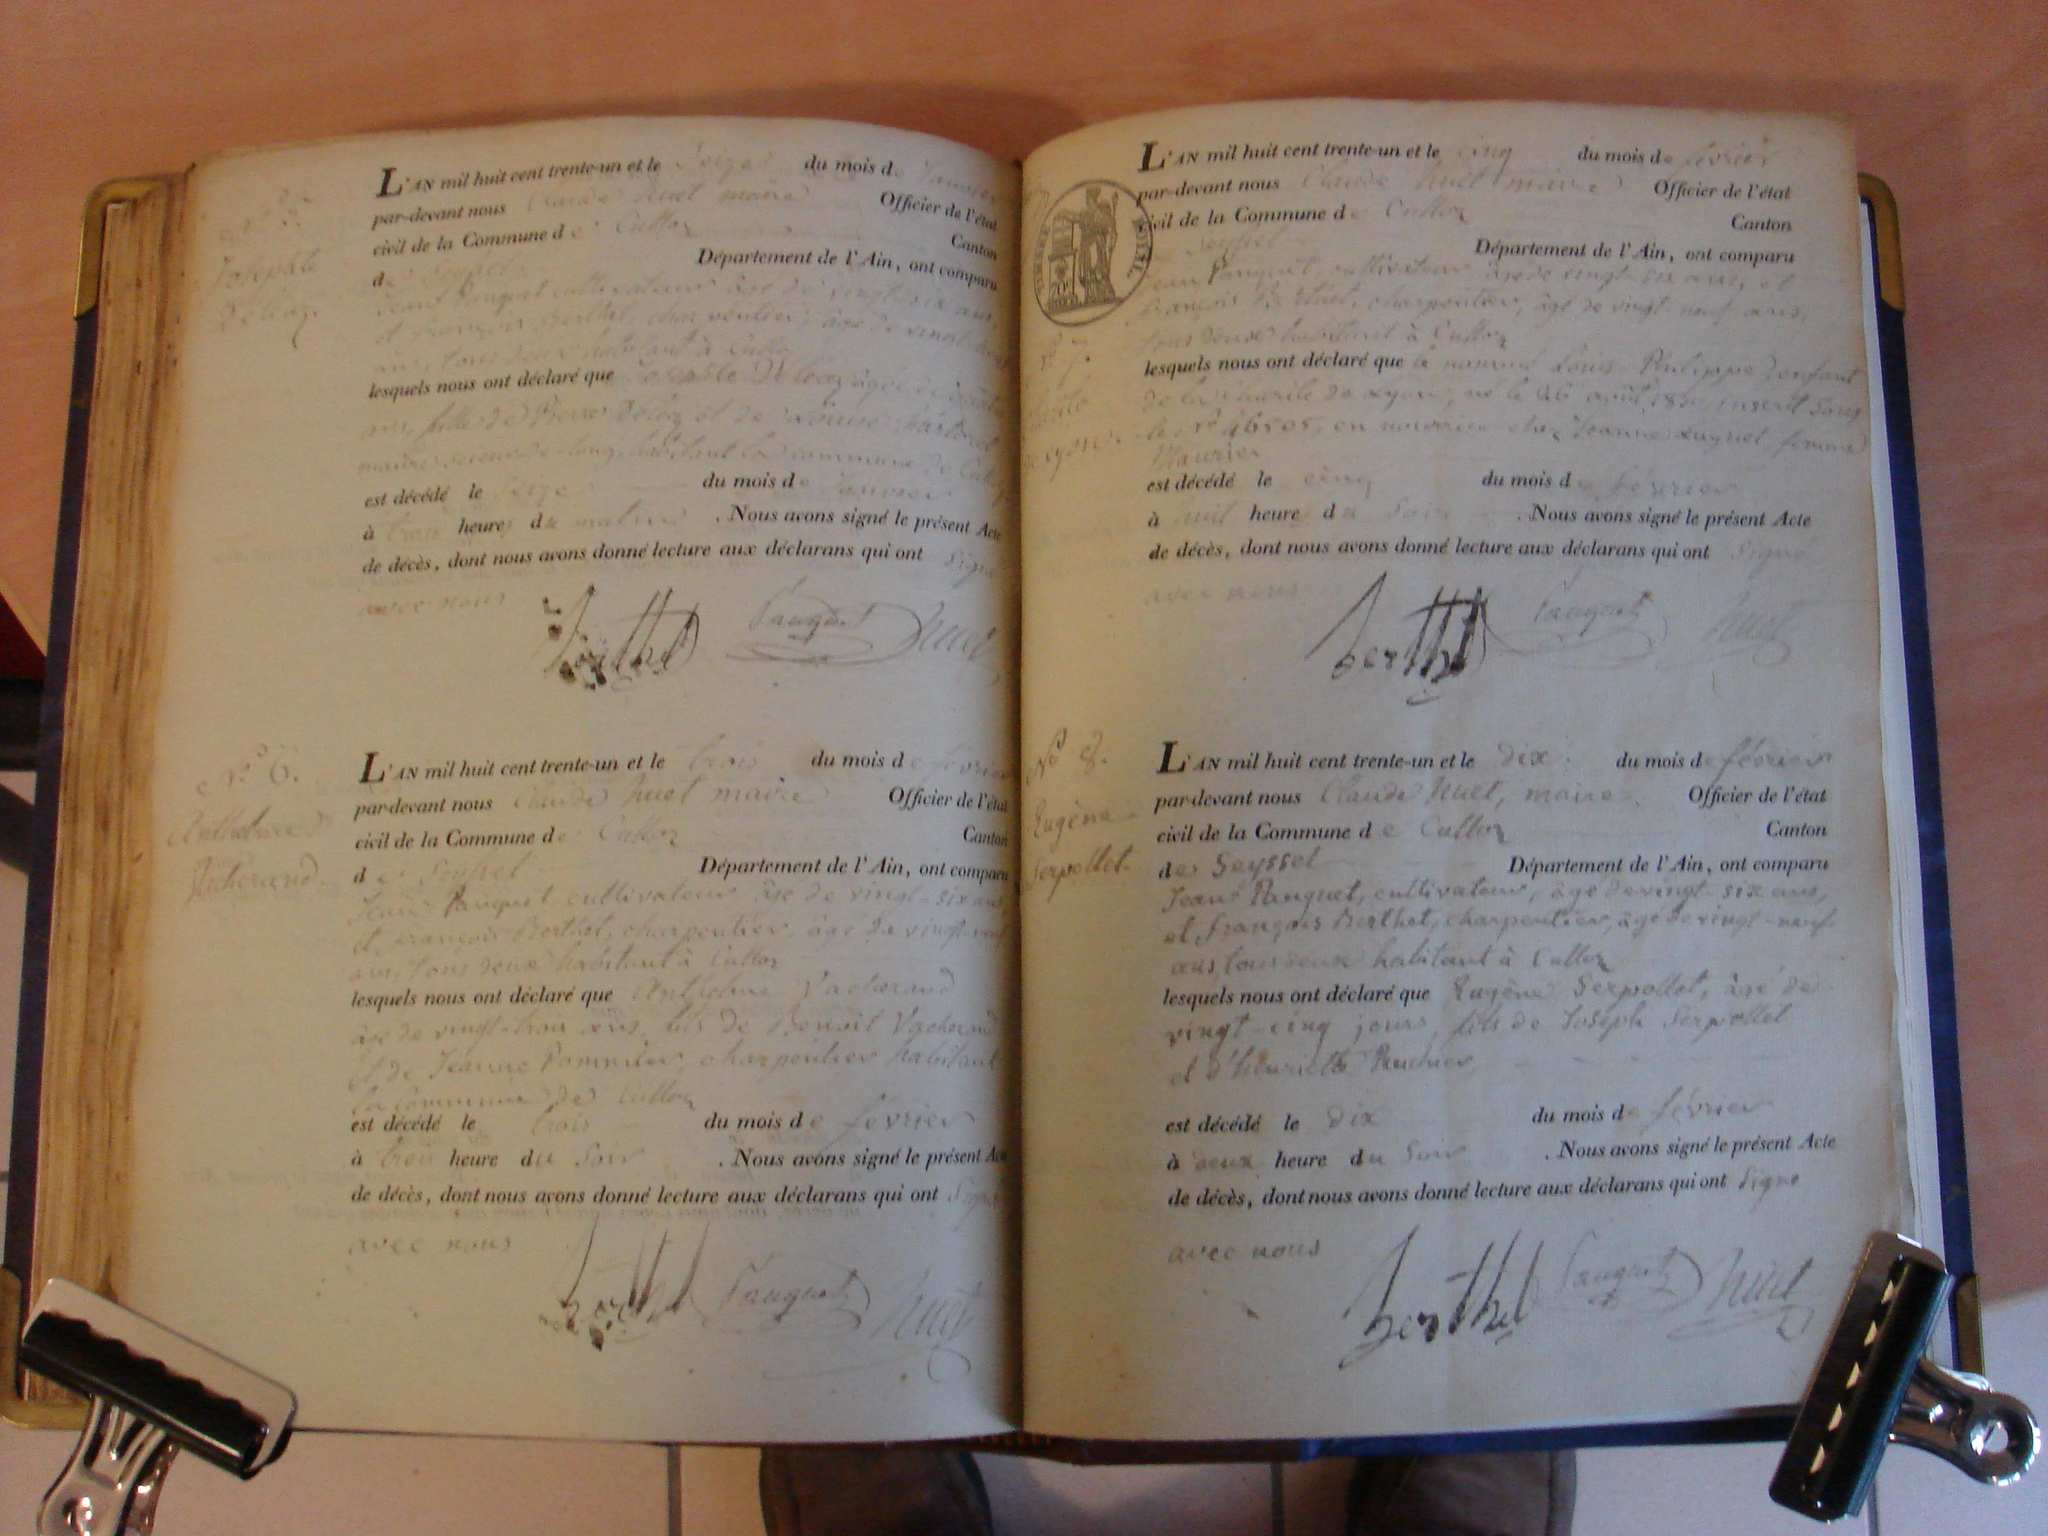 N° 5.
Josephte
Delerz
L'AN mil huit cent trente-un et le Seize du mois de Janvier
par-devant nous Claude huet maire Officier de l'état
civil de la Commune de Culloz Canton
de Seyssel Département de l'Ain, ont comparu
Jean Pauquet cultivateur âgé de vingt-six ans,
et françois Berthet, charpentier, âgé de vingt neuf
ans, tous deux habitant à Culloz
lesquels nous ont déclaré que Josephte âgée
ans, fille de Pierre et de Louise
habitant la commune de Culloz
est décédé le Seize du mois de Janvier
à trois heures du matin . Nous avons signé le présent Acte
de décès, dont nous avons donné lecture aux déclarans qui ont Signé
avec nous
berthet Pauquet huet
N° 6.
Anthelme
Vacherand.
L'AN mil huit cent trente-un et le trois du mois de février
par-devant nous Claude huet maire Officier de l'état
civil de la Commune de Culloz Canton
de Seyssel Département de l'Ain, ont comparu
Jean Pauquet cultivateur âgé de vingt-six ans,
et françois Berthet, charpentier, âgé de vingt-neuf
ans, tous deux habitant à Culloz
lesquels nous ont déclaré que Anthelme Vacherand
âgé de vingt-trois ans, fils de Benoit Vacherand
et de Jeanne Pommier, charpentier habitant
la commune de Culloz
est décédé le trois du mois de février
à trois heure du Soir . Nous avons signé le présent Acte
de décès, dont nous avons donné lecture aux déclarans qui ont Signé
avec nous
berthet Pauquet huet
TIMBRE ROYAL
N° 7.
L'AN mil huit cent trente-un et le cinq du mois de février
par-devant nous Claude huet maire Officier de l'état
civil de la Commune de Culloz Canton
Seyssel Département de l'Ain, ont comparu
Jean Pauquet, cultivateur âgé de vingt-six ans, et
françois Berthet, charpentier, âgé de vingt-neuf ans,
tous deux habitant à Culloz
lesquels nous ont déclaré que le nommé Louis Philippe enfant
de la de Lyon, né le août 1830, inscrit Sous
le n° en nourrice chez Jeanne femme
Maurier
est décédé le cinq du mois de février
à huit heure du Soir . Nous avons signé le présent Acte
de décès, dont nous avons donné lecture aux déclarans qui ont Signé
avec nous
berthet Pauquet huet
N° 8.
Eugène
Serpollet.
L'AN mil huit cent trente-un et le dix du mois de février
par-devant nous Claude Huet, maire Officier de l'état
civil de la Commune de Culloz Canton
de Seyssel Département de l'Ain, ont comparu
Jean Pauquet, cultivateur, âgé de vingt-six ans,
et françois Berthet, charpentier, âgé de vingt-neuf
ans, tous deux habitant à Culloz
lesquels nous ont déclaré que Eugène Serpollet, âgé de
vingt-cinq jours, fils de Joseph Serpollet
et d'henriette
est décédé le dix du mois de février
à deux heure du Soir . Nous avons signé le présent Acte
de décès, dont nous avons donné lecture aux déclarans qui ont Signé
avec nous
berthet Pauquet huet